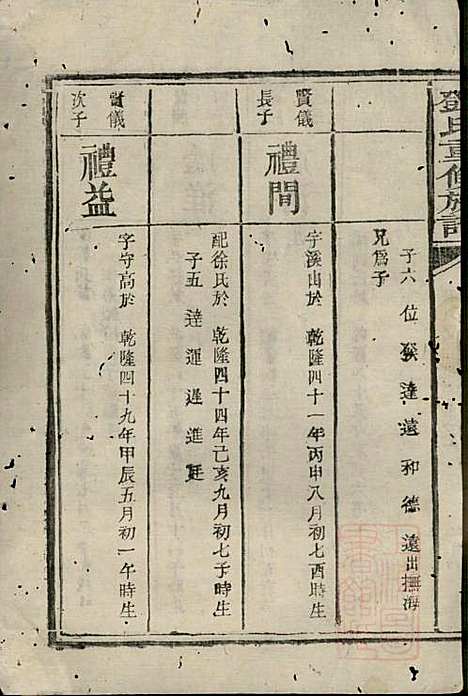 鄧氏重修族譜
子六 位 癸 達 遠 和 德 遠出撫海
兄為子
賢儀
長子
禮間
字溪山於 乾隆四十一年丙申八月初七酉時生
配徐氏於 乾隆四十四年己亥九月初七子時生
子五 達 運 遲 進 廷
賢儀
次子
禮益
字守高於 乾隆四十九年甲辰五月初一午時生